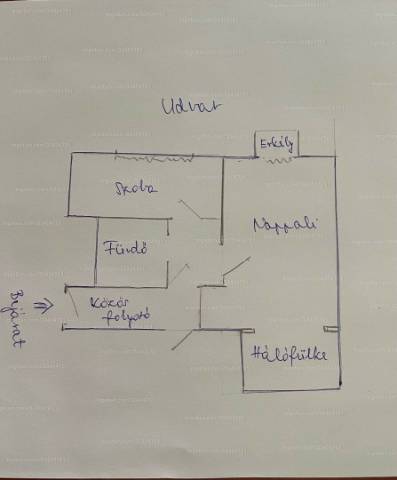 Udvar
Erkély
Szoba
Nappali
Fürdő
Bejárat
Közös
folyosó
Hálófülke